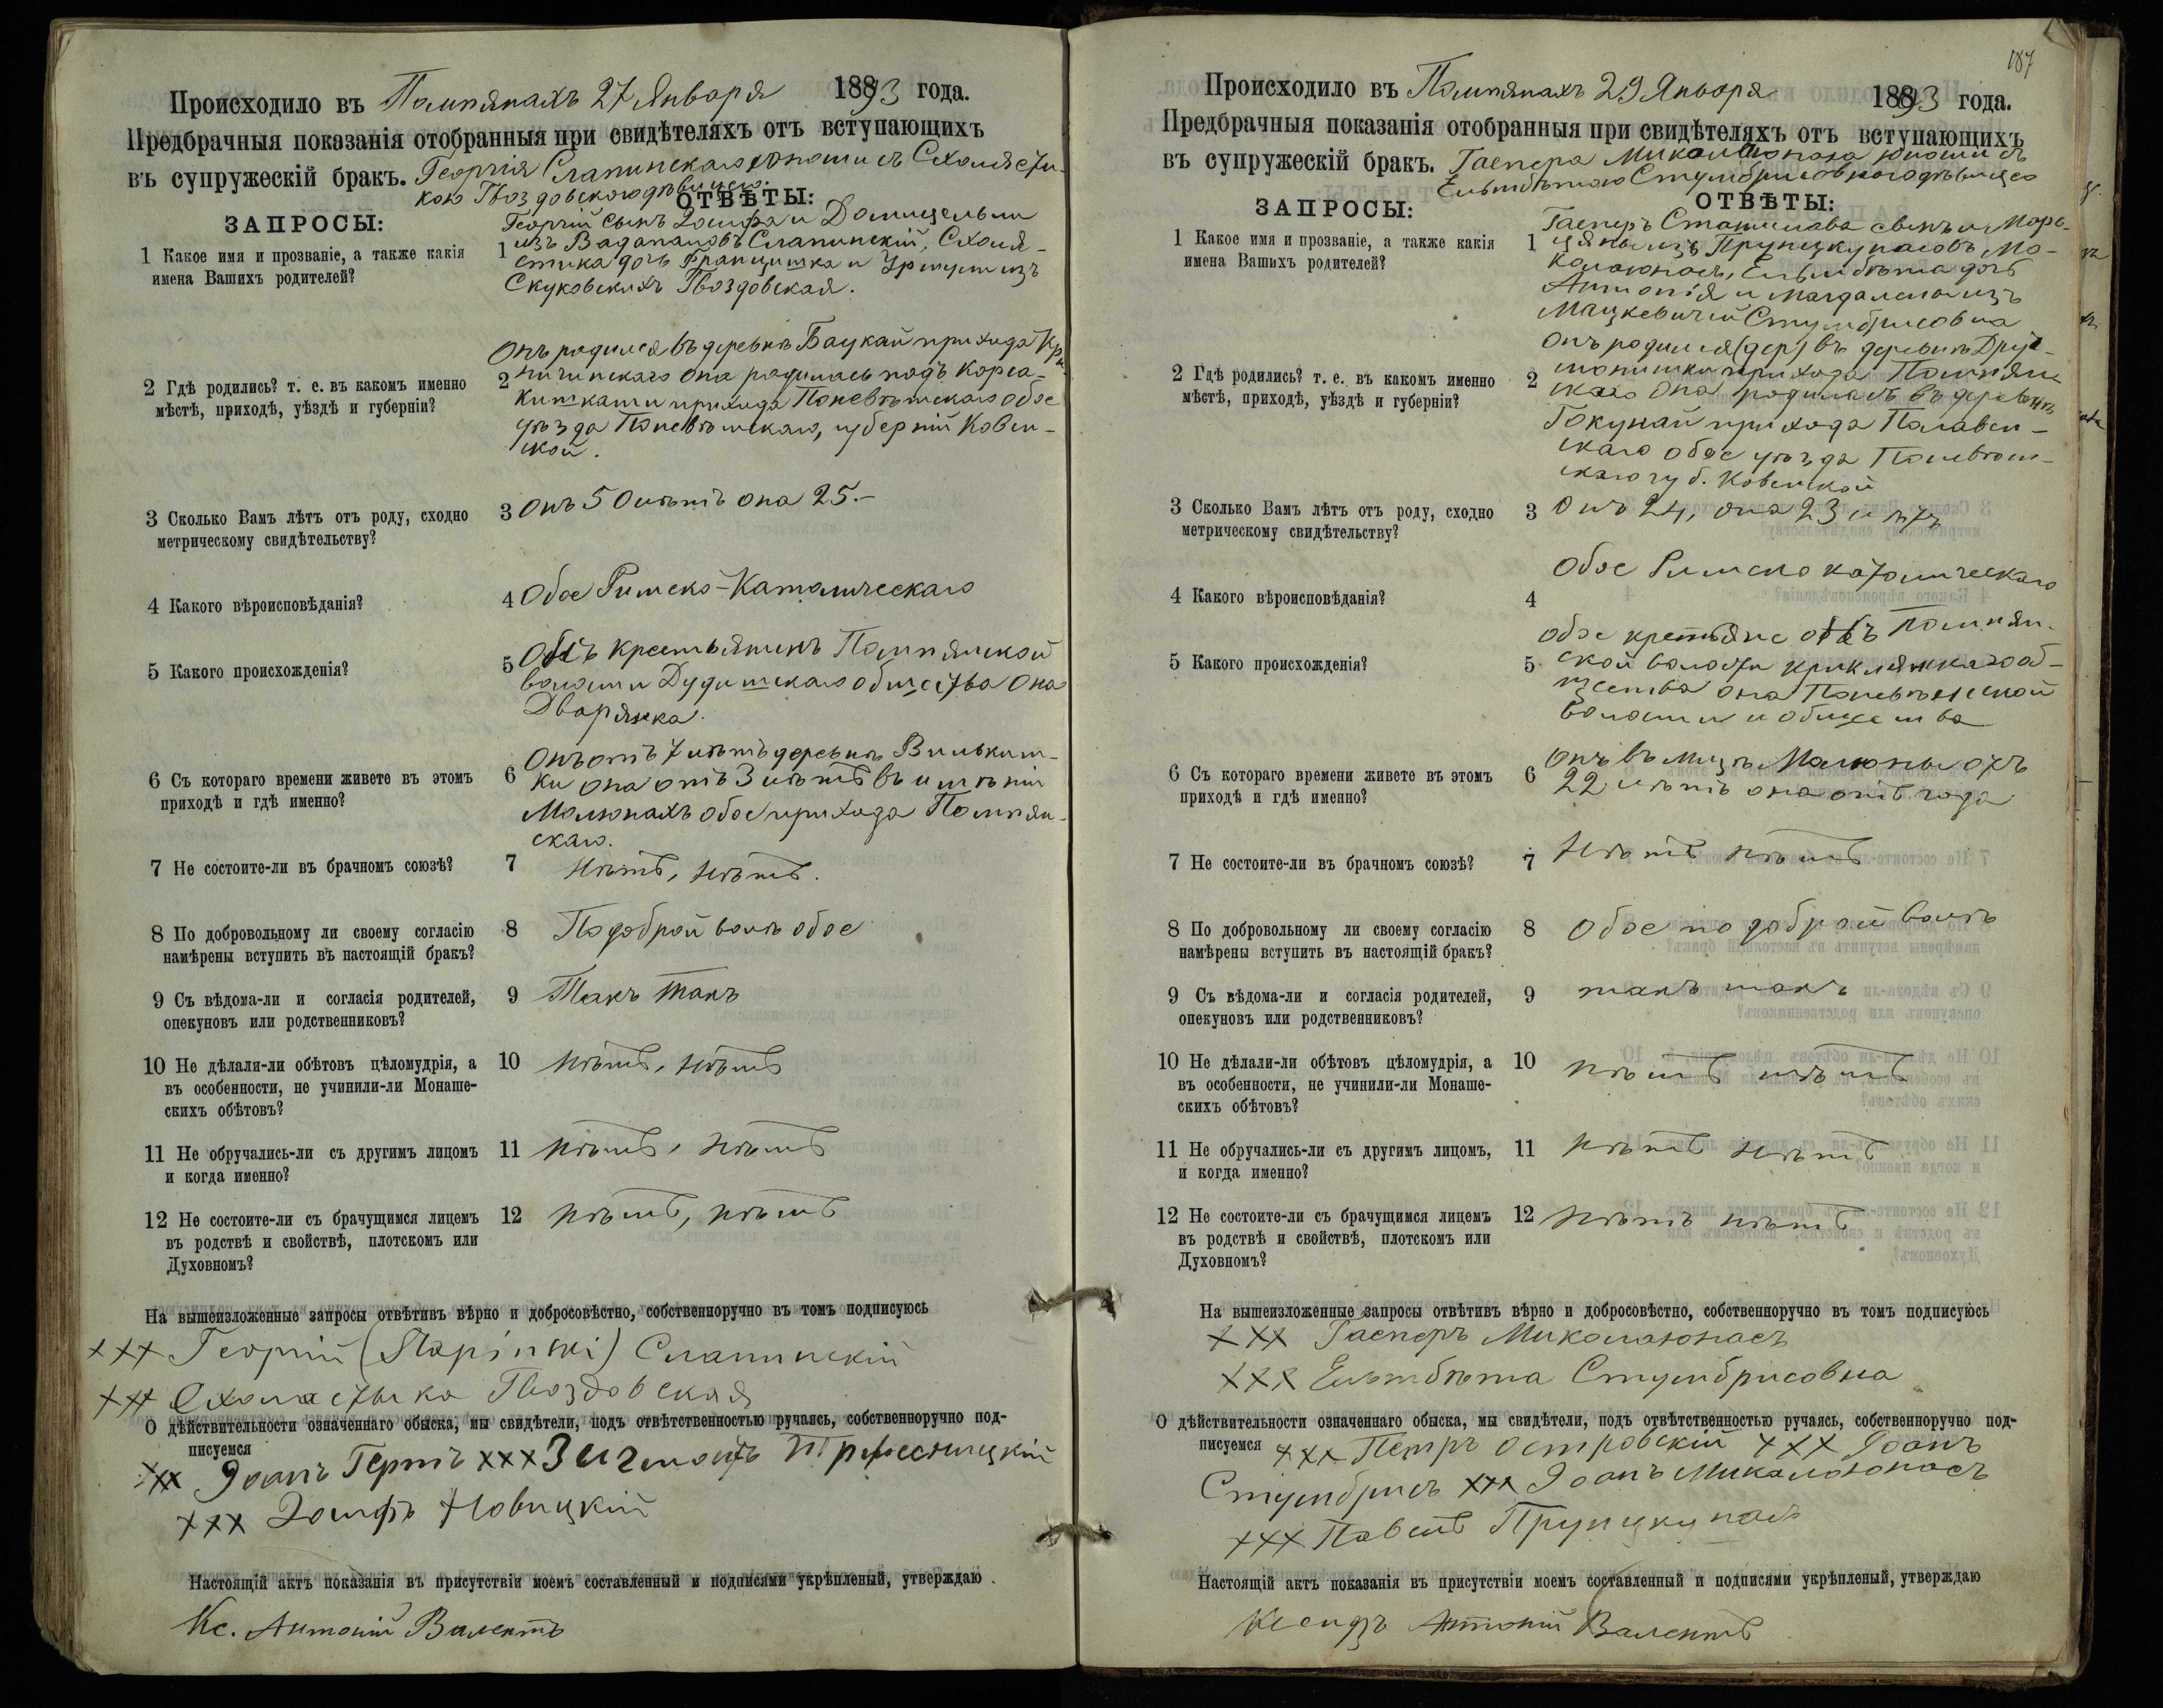 Происходило въ Помпянахъ 27 Января 1893 года.
Предбрачныя показанія отобранныя при свидѣтеляхъ отъ вступающихъ
въ супружескій бракъ. Георгія Слапинскаго юноши съ Схоласти-
кою Гвоздовскою дѣвицею.
ЗАПРОСЫ:
ОТВѢТЫ:
1 Какое имя и прозваніе, а также какія
имена Вашихъ родителей?
1 Георгій сынъ Іосифа и Домицельи
изъ Слапинскій, Схоля-
стика дочь Францишка и Уршули изъ
Скуковскихъ Гвоздовская.
2 Гдѣ родились? т. е. въ какомъ именно
мѣстѣ, приходѣ, уѣздѣ и губерніи?
2 Онъ родился въ деревнѣ Баукай прихода Кри-
ничинскаго она родилась подъ Корса-
кишками прихода Поневѣжскаго обое
уѣзда Поневѣжскаго, губерній Ковен-
ской.
3 Сколько Вамъ лѣтъ отъ роду, сходно
метрическому свидѣтельству?
3 Онъ 50 лѣтъ она 25.-
4 Какого вѣроисповѣданія?
4 Обое Римско-Католическаго
5 Какого происхожденія?
5 Онъ крестьянинъ Помпянской
волости общества Она
Дворянка.
6 Съ котораго времени живете въ этомъ
приходѣ и гдѣ именно?
6 Онъ отъ 7 лѣтъ деревнѣ Вилькиш-
ки она отъ 3 лѣтъ въ имѣніи
Малюнахъ обое прихода Помпян-
скаго.
7 Не состоите-ли въ брачномъ союзѣ?
7 Нѣтъ, нѣтъ.
8 По добровольному ли своему согласію
намѣрены вступить въ настоящій бракъ?
8 По доброй волѣ обое
9 Съ вѣдома-ли и согласія родителей,
опекуновъ или родственниковъ?
9 Такъ такъ
10 Не дѣлали-ли обѣтовъ цѣломудрія, а
въ особенности, не учинили-ли Монаше-
скихъ обѣтовъ?
10 нѣтъ, нѣтъ
11 Не обручались-ли съ другимъ лицомъ
и когда именно?
11 нѣтъ, нѣтъ
12 Не состоите-ли съ брачущимся лицемъ
въ родствѣ и свойствѣ, плотскомъ или
Духовномъ?
12 нѣтъ, нѣтъ
На вышеизложенные запросы отвѣтивъ вѣрно и добросовѣстно, собственноручно въ томъ подписуюсь
+++ Георгій (Słapinski) Слапинскій
+++ Схоластыка Гвоздовская
О дѣйствительности означеннаго обыска, мы свидѣтели, подъ отвѣтственностью ручаясь, собственноручно под-
писуемся
xxx Іоанъ xxx Зигмонтъ
+++ Іосифъ Новицкій
Настоящій актъ показанія въ присутствіи моемъ составленный и подписями укрѣпленый, утверждаю
Кс. Антоній Валентъ
187
Происходило въ Помпянахъ 29 Января 1893 года.
Предбрачныя показанія отобранныя при свидѣтеляхъ отъ вступающихъ
въ супружескій бракъ. Гаспера Миколаюнаса юноши съ
Ельжбѣтою Стумбрисовною дѣвицею
ЗАПРОСЫ:
ОТВѢТЫ:
1 Какое имя и прозваніе, а также какія
имена Вашихъ родителей?
1 Гасперъ Станислава сынъ и Мары-
цяны изъ Прунцкунасовъ Ми-
колаюнасъ, Ельжбѣта дочь
Антонія и Магдалены изъ
Мацкевичей Стумбрисовна
2 Гдѣ родились? т. е. въ какомъ именно
мѣстѣ, приходѣ, уѣздѣ и губерніи?
2 Онъ родился (дер) въ деревнѣ
прихода Помпян-
скаго Она родилась въ деревнѣ
прихода
скаго обое уѣзда Поневѣж-
скаго губ. Ковенской
3 Сколько Вамъ лѣтъ отъ роду, сходно
метрическому свидѣтельству?
3 Онъ 24, она 23 лѣтъ
4 Какого вѣроисповѣданія?
4 Обое Римско католическаго
5 Какого происхожденія?
5 обое крестьяне онъ Помпян-
ской волости об-
щества она Поневѣжской
волости и общества
6 Съ котораго времени живете въ этомъ
приходѣ и гдѣ именно?
6 Онъ въ Малюны отъ
22 лѣтъ она отъ года
7 Не состоите-ли въ брачномъ союзѣ?
7 Нѣтъ нѣтъ
8 По добровольному ли своему согласію
намѣрены вступить въ настоящій бракъ?
8 Обое по доброй волѣ
9 Съ вѣдома-ли и согласія родителей,
опекуновъ или родственниковъ?
9 такъ такъ
10 Не дѣлали-ли обѣтовъ цѣломудрія, а
въ особенности, не учинили-ли Монаше-
скихъ обѣтовъ?
10 нѣтъ нѣтъ
11 Не обручались-ли съ другимъ лицомъ,
и когда именно?
11 нѣтъ нѣтъ
12 Не состоите-ли съ брачущимся лицемъ
въ родствѣ и свойствѣ, плотскомъ или
Духовномъ?
12 нѣтъ нѣтъ
На вышеизложенные запросы отвѣтивъ вѣрно и добросовѣстно, собственноручно въ томъ подписуюсь
+++ Гасперъ Миколаюнасъ
+++ Ельжбѣта Стумбрисовна
О дѣйствительности означеннаго обыска, мы свидѣтели, подъ отвѣтственностью ручаясь, собственноручно под-
писуемся +++ Петръ Островскій +++ Іоанъ
Стумбрисъ xxx Іоанъ Миколаюнасъ
+++ Павелъ Прунцкунасъ
Настоящій актъ показанія въ присутствіи моемъ составленный и подписями укрѣпленый, утверждаю
Ксендзъ Антоній Валентъ